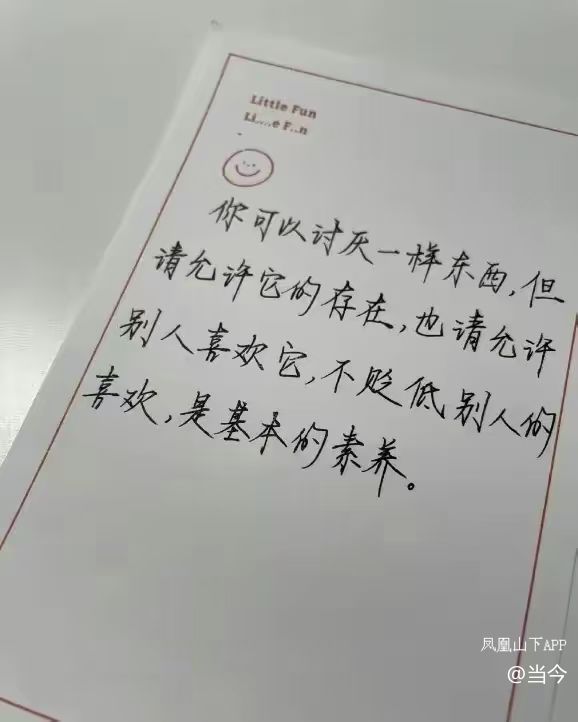 Little Fun
Li....e F..n
你可以讨厌一样东西,但
请允许它的存在,也请允许
别人喜欢它,不贬低别人的
喜欢,是基本的素养。
凤凰山下APP
@当今